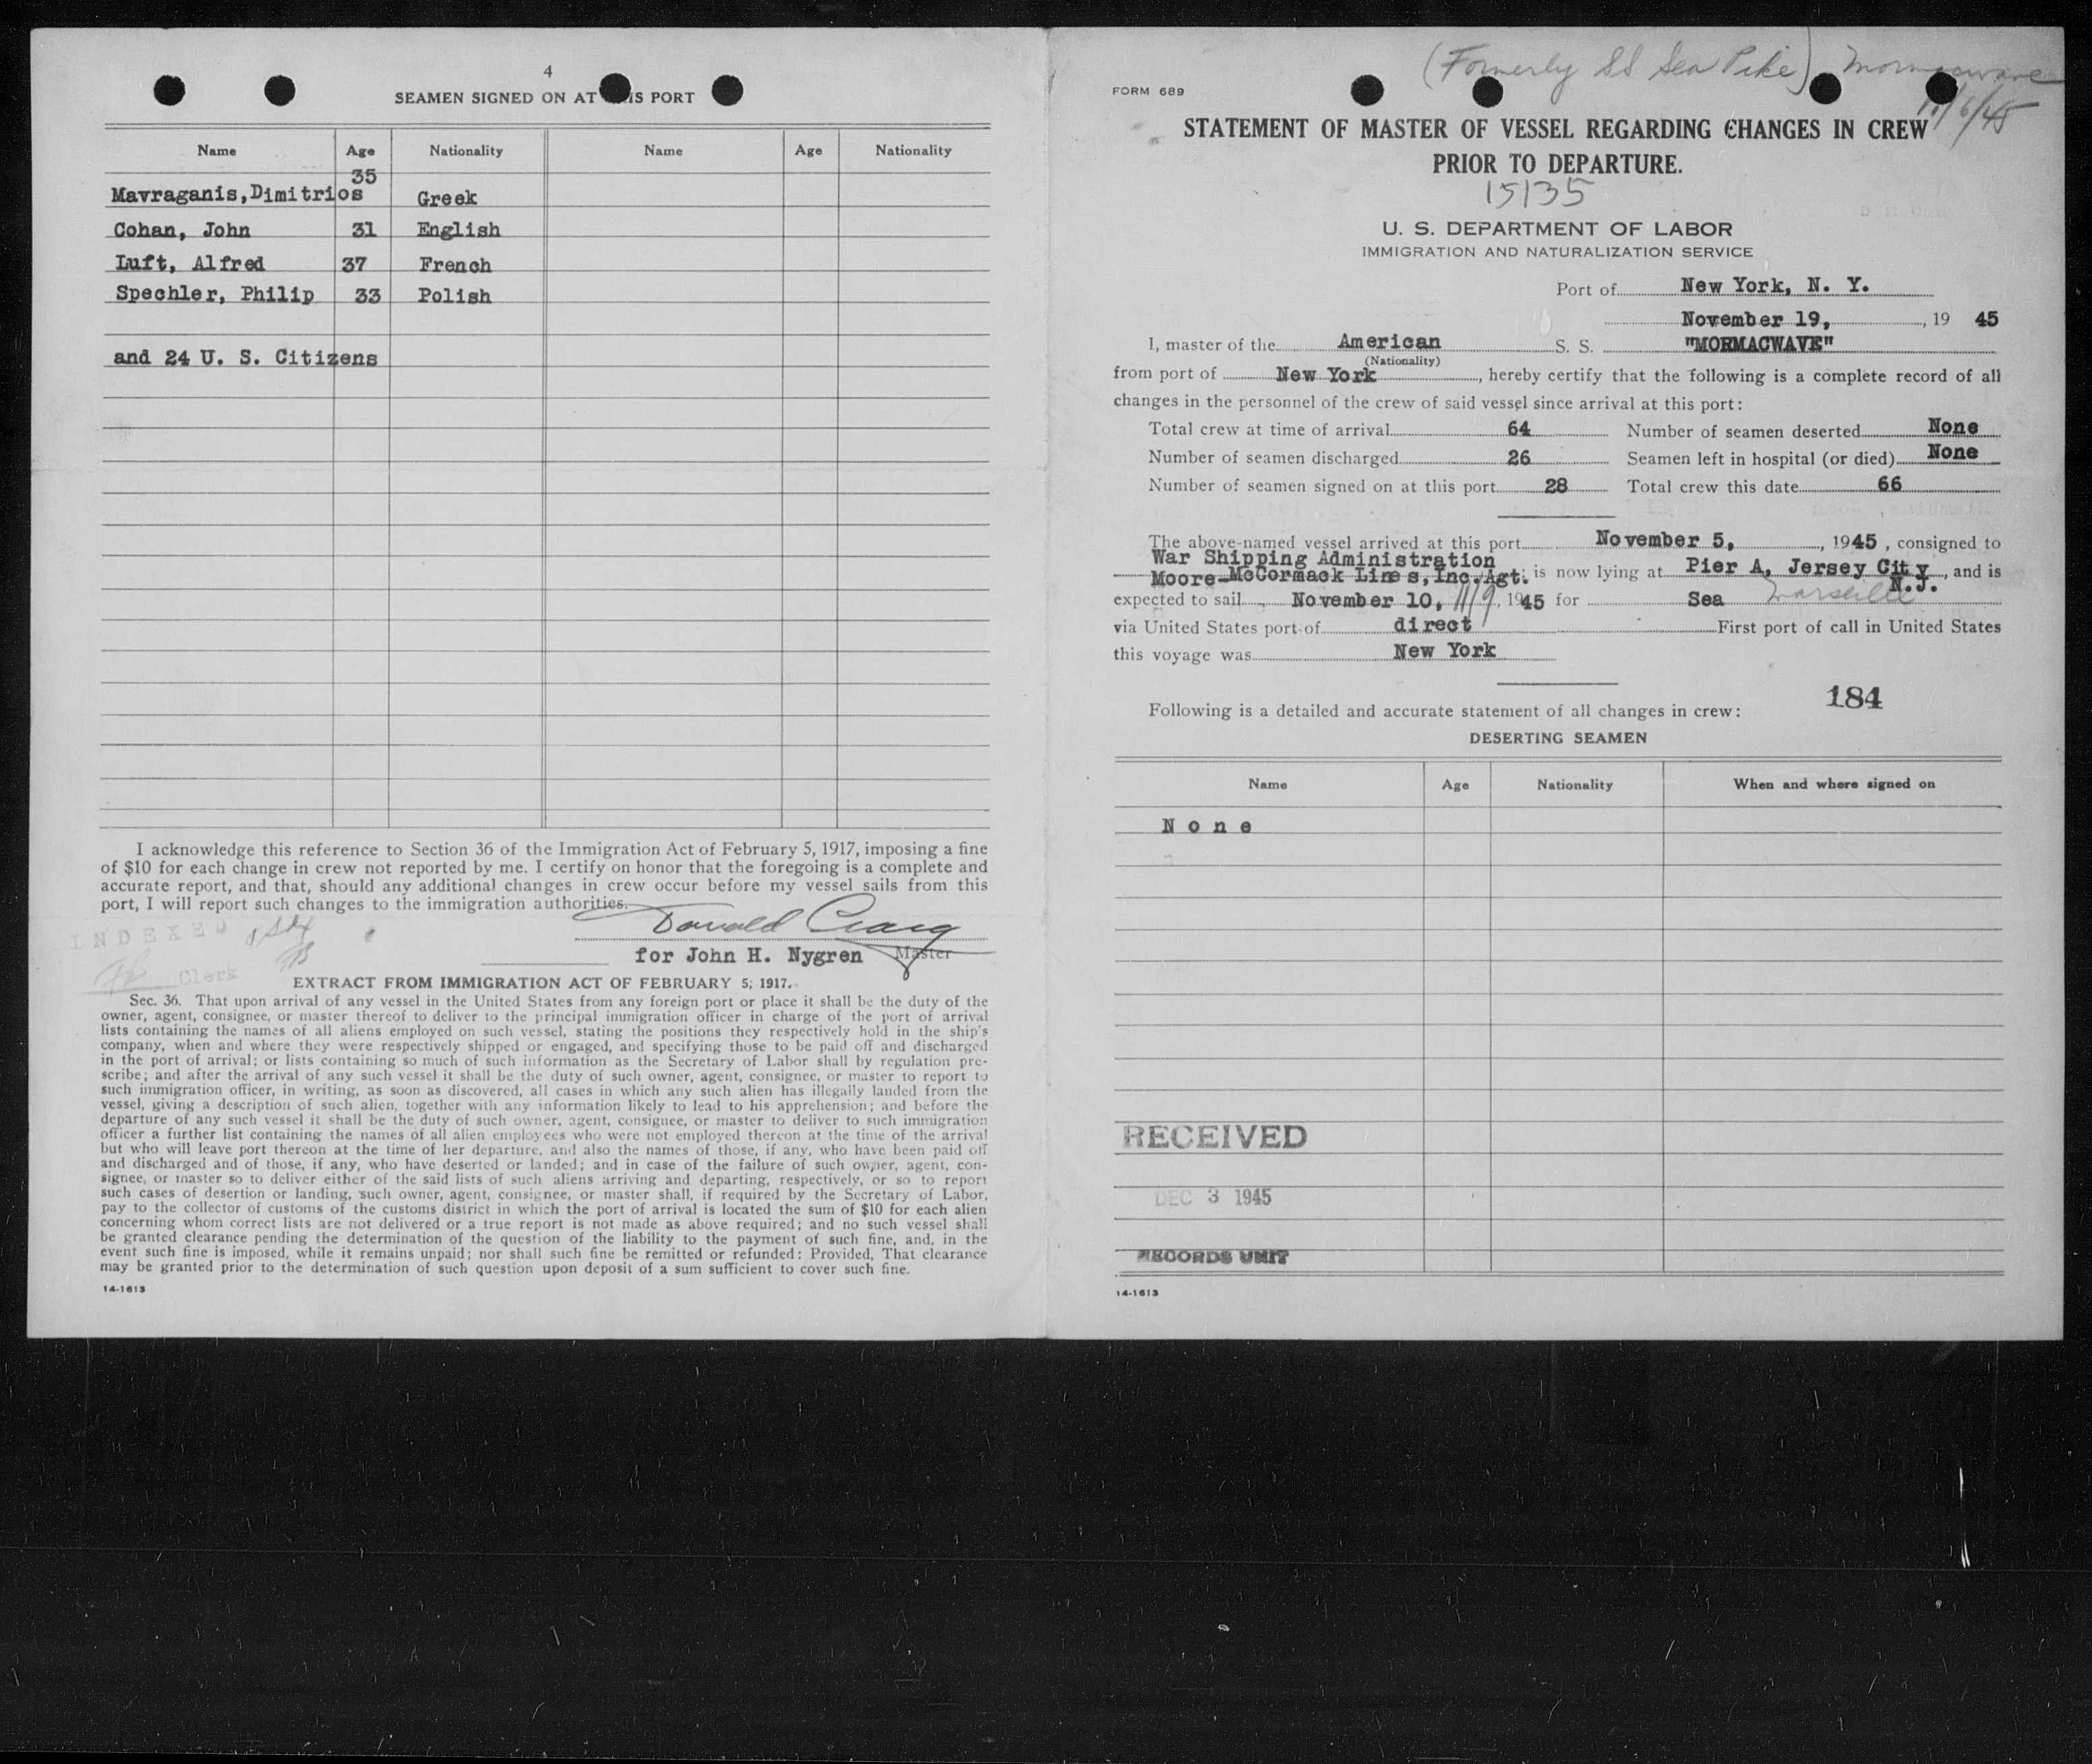 4
SEAMEN SIGNED ON AT THIS PORT
Name Age Nationality Name Age Nationality
Mavraganis, Dimitrios 35 Greek
Cohan, John 31 English
Luft, Alfred 37 French
Spechler, Philip 33 Polish
and 24 U. S. Citizens
I acknowledge this reference to Section 36 of the Immigration Act of February 5, 1917, imposing a fine
of $10 for each change in crew not reported by me. I certify on honor that the foregoing is a complete and
accurate report, and that, should any additional changes in crew occur before my vessel sails from this
port, I will report such changes to the immigration authorities.
Donald Craig
INDEXED
for John H. Nygren Master
Clerk
EXTRACT FROM IMMIGRATION ACT OF FEBRUARY 5, 1917.
Sec. 36. That upon arrival of any vessel in the United States from any foreign port or place it shall be the duty of the
owner, agent, consignee, or master thereof to deliver to the principal immigration officer in charge of the port of arrival
lists containing the names of all aliens employed on such vessel, stating the positions they respectively hold in the ship's
company, when and where they were respectively shipped or engaged, and specifying those to be paid off and discharged
in the port of arrival; or lists containing so much of such information as the Secretary of Labor shall by regulation pre-
scribe; and after the arrival of any such vessel it shall be the duty of such owner, agent, consignee, or master to report to
such immigration officer, in writing, as soon as discovered, all cases in which any such alien has illegally landed from the
vessel, giving a description of such alien, together with any information likely to lead to his apprehension; and before the
departure of any such vessel it shall be the duty of such owner, agent, consignee, or master to deliver to such immigration
officer a further list containing the names of all alien employees who were not employed thereon at the time of the arrival
but who will leave port thereon at the time of her departure, and also the names of those, if any, who have been paid off
and discharged and of those, if any, who have deserted or landed; and in case of the failure of such owner, agent, con-
signee, or master so to deliver either of the said lists of such aliens arriving and departing, respectively, or so to report
such cases of desertion or landing, such owner, agent, consignee, or master shall, if required by the Secretary of Labor,
pay to the collector of customs of the customs district in which the port of arrival is located the sum of $10 for each alien
concerning whom correct lists are not delivered or a true report is not made as above required; and no such vessel shall
be granted clearance pending the determination of the question of the liability to the payment of such fine, and, in the
event such fine is imposed, while it remains unpaid; nor shall such fine be remitted or refunded: Provided, That clearance
may be granted prior to the determination of such question upon deposit of a sum sufficient to cover such fine.
14-1613
(Formerly SS Sea Pike) Mormacwave
11/6/45
FORM 689
STATEMENT OF MASTER OF VESSEL REGARDING CHANGES IN CREW
PRIOR TO DEPARTURE.
15135
U. S. DEPARTMENT OF LABOR
IMMIGRATION AND NATURALIZATION SERVICE
Port of New York, N. Y.
November 19, , 19 45
I, master of the American S. S. "MORMACWAVE"
(Nationality)
from port of New York , hereby certify that the following is a complete record of all
changes in the personnel of the crew of said vessel since arrival at this port:
Total crew at time of arrival 64 Number of seamen deserted None
Number of seamen discharged 26 Seamen left in hospital (or died) None
Number of seamen signed on at this port 28 Total crew this date 66
The above-named vessel arrived at this port November 5, , 1945 , consigned to
War Shipping Administration
Moore-McCormack Lines, Inc. Agt. is now lying at Pier A, Jersey City N.J. , and is
expected to sail November 10, 11/9, 1945 for Sea Marseille
via United States port of direct First port of call in United States
this voyage was New York
184
Following is a detailed and accurate statement of all changes in crew:
DESERTING SEAMEN
Name Age Nationality When and where signed on
None
RECEIVED
DEC 3 1945
RECORDS UNIT
14-1613